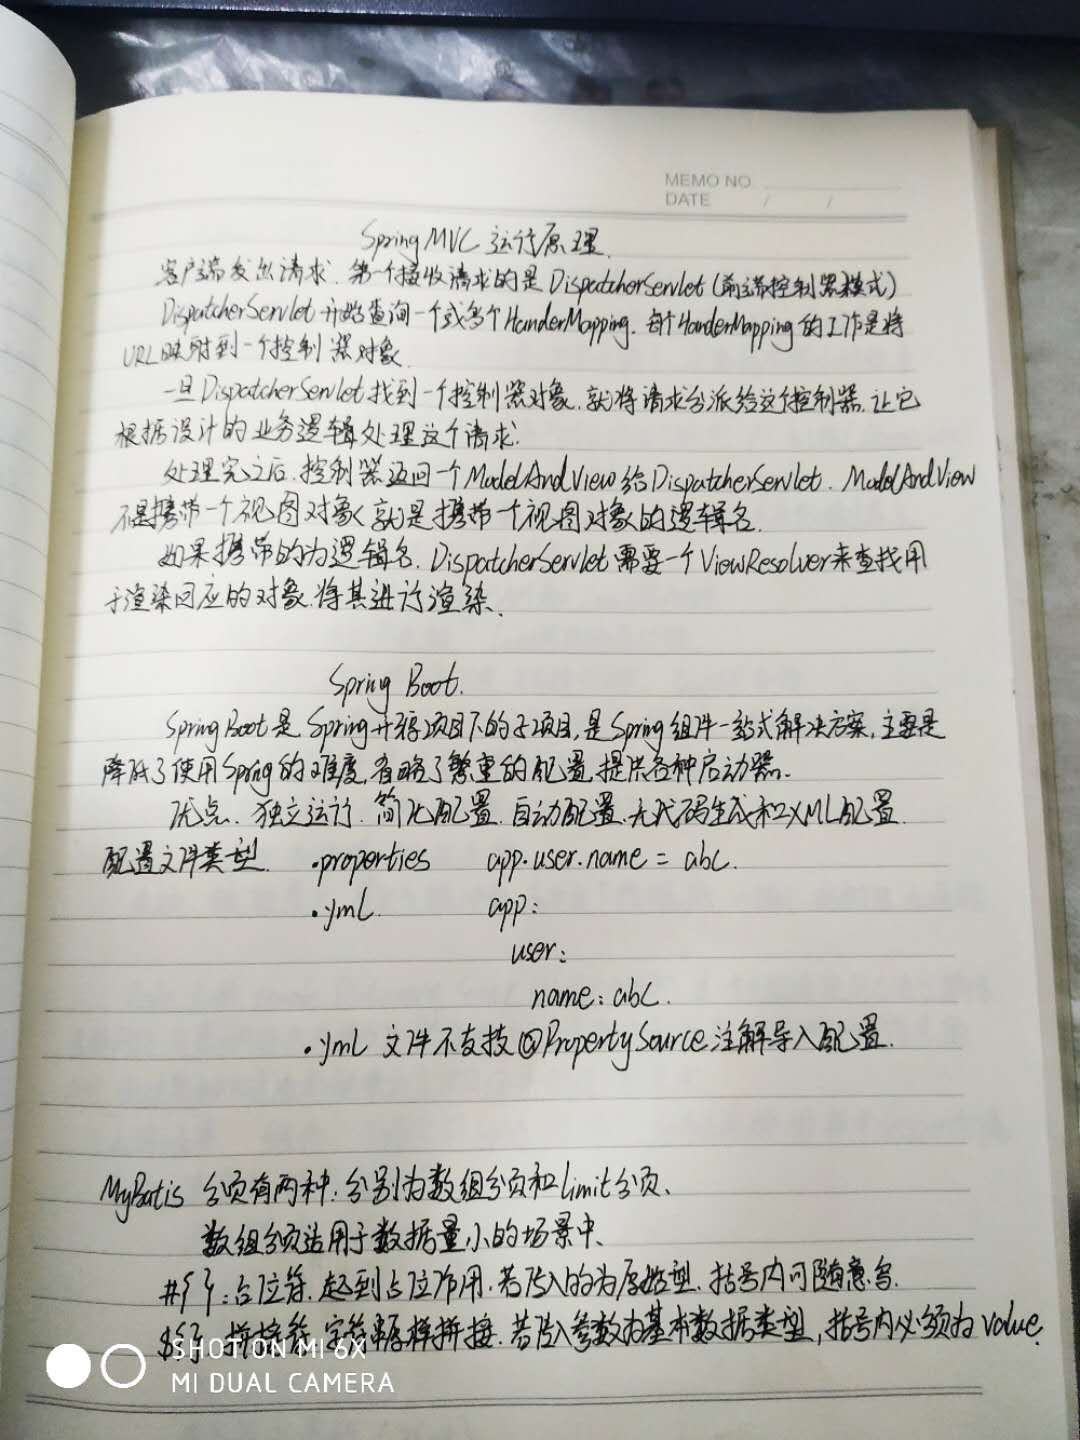 MEMO NO.
DATE / /
Spring MVC 运行原理.
客户端发出请求. 第一个接收请求的是 DispatcherServlet (前端控制器模式)
DispatcherServlet 开始查询一个或多个HanderMapping. 每个HanderMapping 的工作是将
URL映射到一个控制器对象.
一旦DispatcherServlet找到一个控制器对象. 就将请求分派给这个控制器. 让它
根据设计的业务逻辑处理这个请求.
处理完之后. 控制器返回一个ModelAndView给DispatcherServlet. ModelAndView
不是携带一个视图对象就是携带一个视图对象的逻辑名.
如果携带的为逻辑名. DispatcherServlet需要一个ViewResolver来查找用
于渲染回应的对象.将其进行渲染.
Spring Boot.
Spring Boot是 Spring开源项目下的子项目, 是Spring组件一站式解决方案, 主要是
降低了使用Spring的难度. 省略了繁重的配置. 提供各种启动器.
优点. 独立运行. 简化配置. 自动配置.无代码生成和XML配置.
配置文件类型. .properties app.user.name = abc.
.yml. app:
user:
name: abc.
.yml 文件不支持@PropertySource注解导入配置.
MyBatis 分页有两种: 分别为数组分页和limit分页、
数组分页适用于数据量小的场景中、
#{}: 占位符. 起到占位作用. 若传入的为原始型. 括号内可随意写.
${} 拼接符 字符串原样拼接. 若传入参数为基本数据类型, 括号内必须为value.
SHOT ON MI 6X
MI DUAL CAMERA